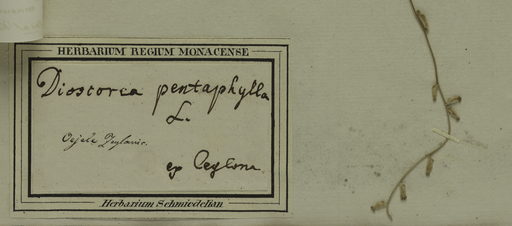 HERBARIUM REGIUM MONACENSE
Dioscorea pentaphylla
L.
ex Ceylona
Herbarium Schmiedelian